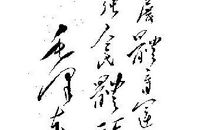 展體育運
強人民體
毛澤东